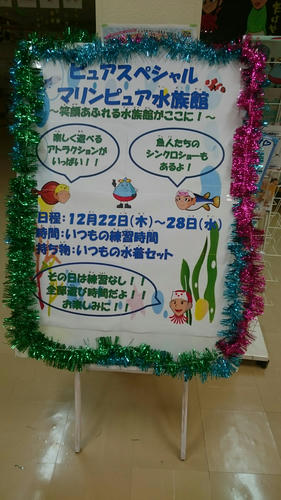 ピュアスペシャル
マリンピュア水族館
～笑顔あふれる水族館がここに！～
楽しく遊べる
アトラクションが
いっぱい！！
魚人たちの
シンクロショーも
あるよ！
日程：12月22日(木)～28日(水)
時間：いつもの練習時間
持ち物：いつもの水着セット
その日は練習なし！！
全部遊び時間だよ！！
お楽しみに！！